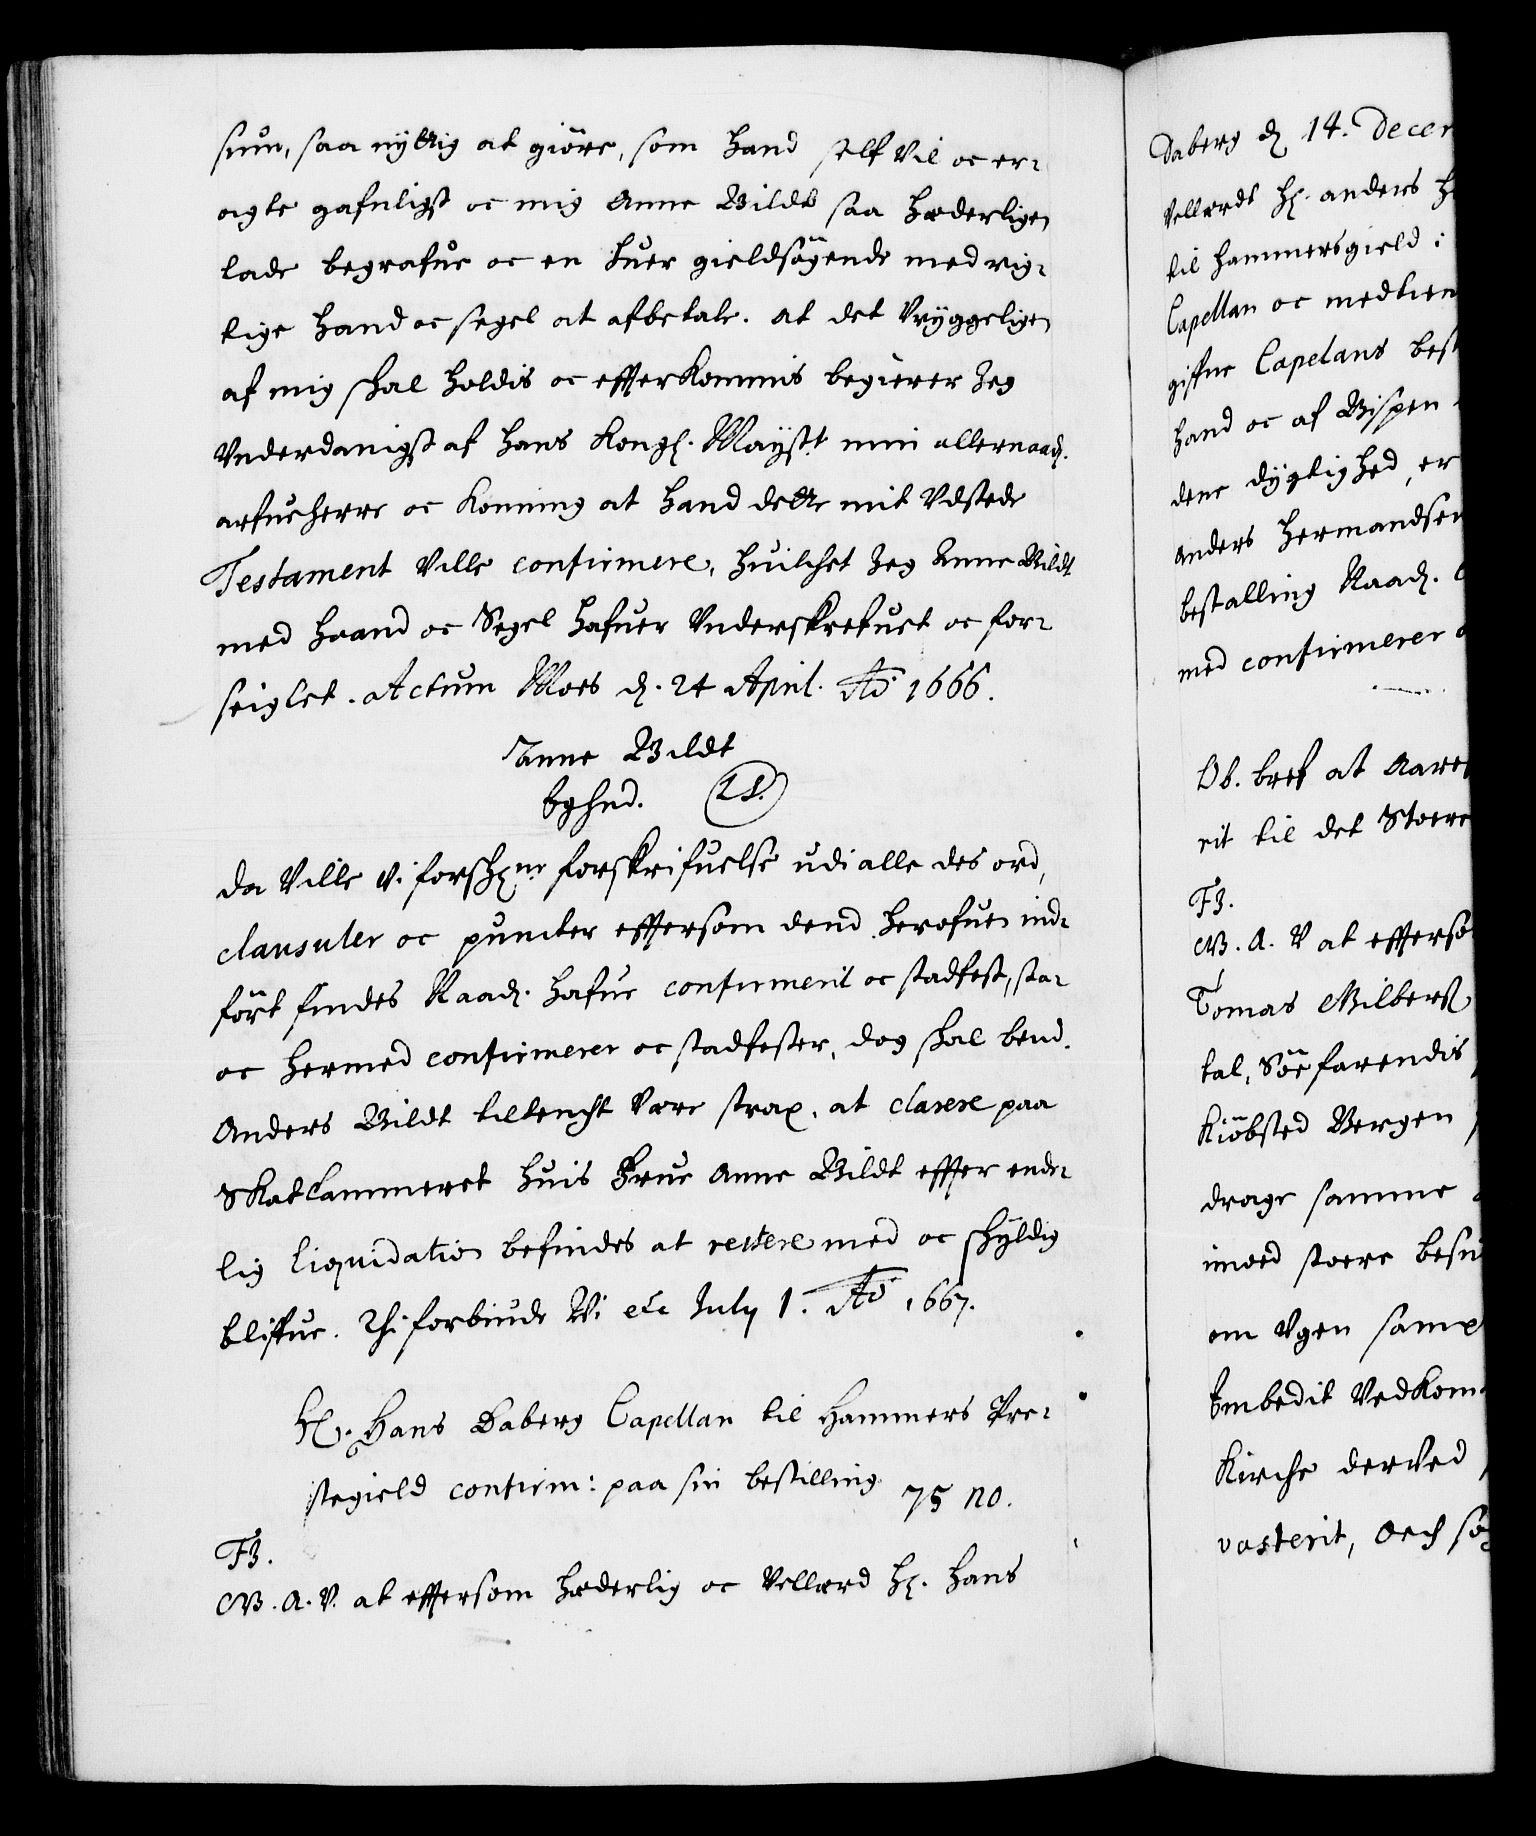 sum, saa nyttig at giöre, som hand self vil oc er-
agte gafnligst oc mig Anne Bildt saa hæderligen
lade begrafue oc en huer gieldsögende med rig-
tige hand oc segel at afbetale. at det Vryggeligen
af mig skal holdis oc efterkommis begierer Jeg
Vnderdanigst af hans Kongl. Mayst. min allernaad.
arfueherre oc Konning at hand dette mit Vdstede
Testament Ville confirmere, huilchet Jeg Anne Bildt
med haand oc Segel hafuer Vnderskrefuet oc for-
seiglet. Actum Moes d. 24 April. Ao 1666.
Anne Bildt
eghnd. L S.
da Ville Vi forschne forskrifuelse udi alle des ord,
clausuler oc puncter eftersom dend herofuen ind-
fört findes Naad. hafue confirmerit oc stadfest, saa
oc hermed confirmerer oc stadfester, dog skal bend.
Anders Bildt tiltencht være strax, at clarere paa
Skatkammeret huis Frue Anne Bildt efter ende-
lig liqvidation befindes at restere med oc skyldig
blifue. Thi forbiude Vi etc July 1. Ao 1667.
Hr. Hans Daberg Capellan til Hammers Pre-
stegield confirm: paa sin bestilling 75 no.
F3.
W. A. V. at eftersom hæderlig oc Vellærd Hr. Hans
Daberg d 14. Decem
Vellærdt Hr. anders H
til hammersgield i
Capellan oc medtien
gifne Capelans best
hand oc af Bispen
dene dygtighed, er
Anders Hermandsen
bestalling Naad.
med confirmerer
Ob. bref at Aare
rit til det Stoere
F3.
W. A. V at efterso
Tomas
tal, Söefarendis
Kiöbsted Bergen
drage samme
imod stoere besu
om Vgen samp
Embedit Vedkom
Kirche derved
vosterit, Och